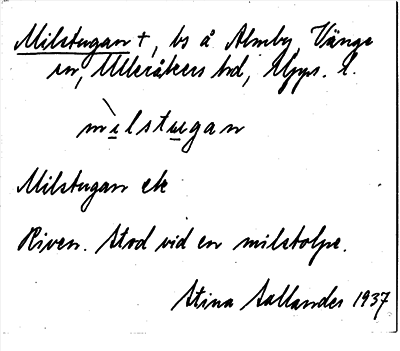 Milstugan +, bs å Almby, Vänge
sn, Ulleråkers hd, Upps. l.
mi̲lstu̲gan
Milstugan ek
Riven. Stod vid en milstolpe.
Stina Sallander 1937